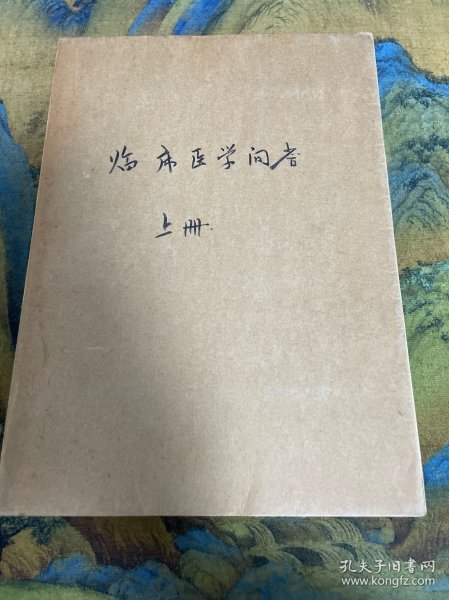 临床医学问答
上册.
孔夫子旧书网
www.kongfz.com